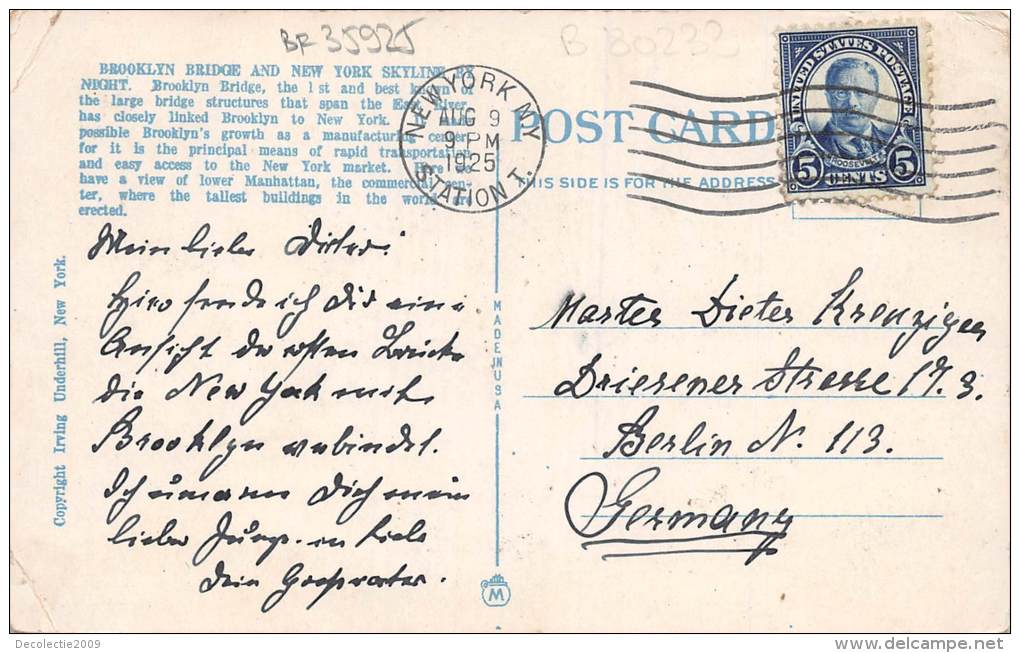 BF 35925
B 80232
BROOKLYN BRIDGE AND NEW YORK SKYLINE BY
NIGHT. Brooklyn Bridge, the 1st and best known of
the large bridge structures that span the East River
has closely linked Brooklyn to New York. It made
possible Brooklyn's growth as a manufacturing center
for it is the principal means of rapid transportation
and easy access to the New York market. Here we
have a view of lower Manhattan, the commercial cen-
ter, where the tallest buildings in the world are
erected.
NEW YORK N.Y
AUG 9
9 PM
1925
STATION T.
POST CARD
THIS SIDE IS FOR THE ADDRESS
UNITED STATES POSTAGE
ROOSEVELT
5 CENTS 5
Mein lieber Dieter!
Hier sende ich Dir eine
Ansicht der ersten Brücke
die New York mit
Brooklyn verbindet.
Ich umarme Dich mein
lieber Junge. in Liebe
Dein Grossvater.
Copyright Irving Underhill, New York.
MADE IN USA
M
Master Dieter Krenziger
Driesener Strasse 17. 3.
Berlin N. 113.
Germany
Delcampe.net
Decolectie2009